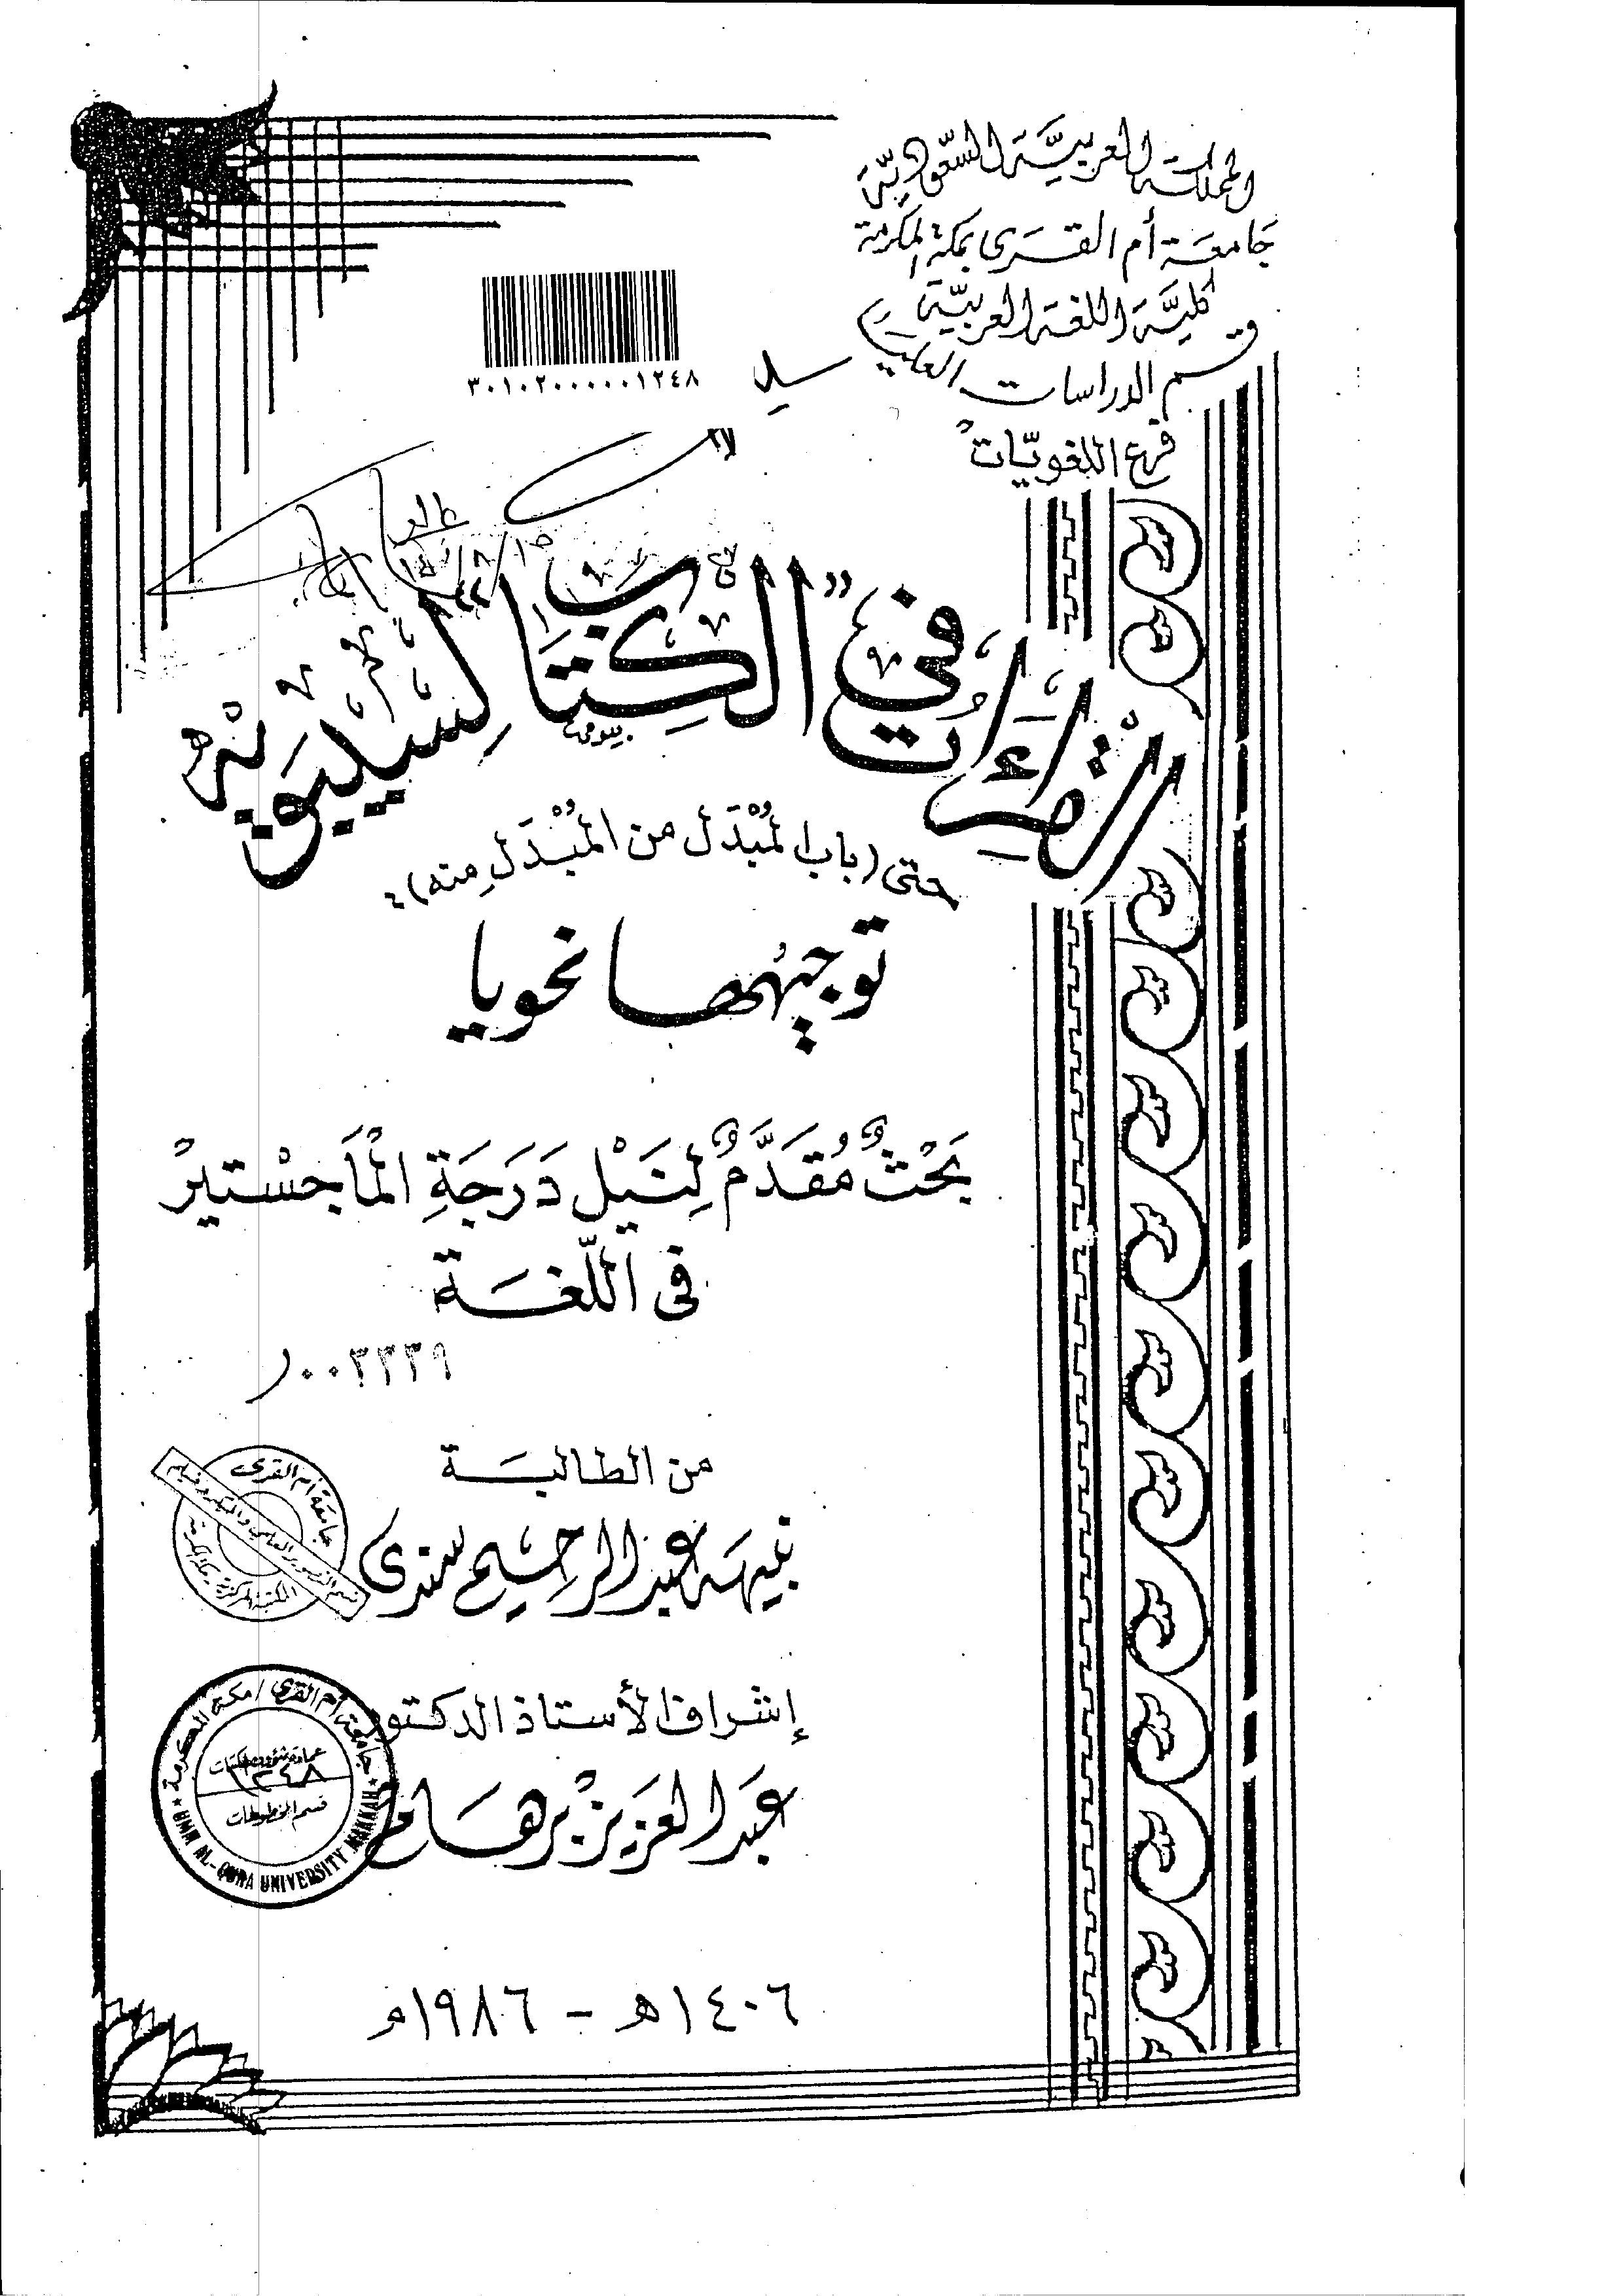 المملكة العربيَّة السّعوديّة
جَامعَة أم القرَى بمكة المكرمة
كليَّة اللغة العربيّة
قسم الدراسات العليا
فرع اللغويّات
٣٠١٠٢٠٠٠٠٠١٢٤٨
القِراءَاتُ في "الكِتَابِ" لِسيبَوَيْه
حتى (باب المُبْدَل من المُبْدَلِ منه)
توجيهُها نحويا
بَحْثٌ مُقَدَّمٌ لِنَيْل دَرَجَةِ المَاجسْتيرْ
فى اللّغَة
٠٠٣٣٣٩
من الطالبَة
نبيهة عبد الرحيم سندى
إشراف الأستاذ الدكتور
عبَد العزيز برهَام
١٤٠٦ه - ١٩٨٦م
جامعة أم القرى
جامعة أم القرى / مكة المكرمة
عمادة شؤون المكتبات
١٢٤٨
قسم المخطوطات
UMM AL-QURA UNIVERSITY MAKKAH